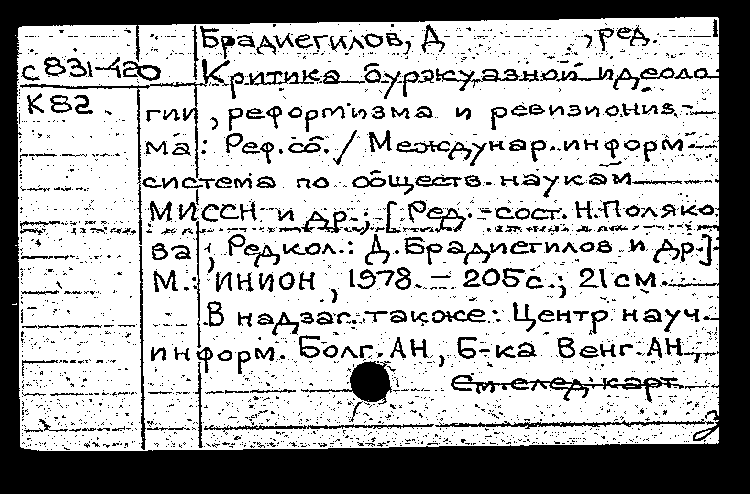 Брадиегилов, Д , ред.
с831-420 Критика буржуазной идеоло
К82. гии, реформизма и ревизиониз-
ма: Реф.сб./ Междунар. информ.
система по обществ. наукам
МИССН и др.; [Ред.-сост. Н.Поляко
ва; Редкол.: Д.Брадиегилов и др.].
М.: ИНИОН, 1978. – 205с.; 21см.
В надзаг. также: Центр науч.
информ. Болг.АН, Б-ка Венг.АН,
См.след.карт.